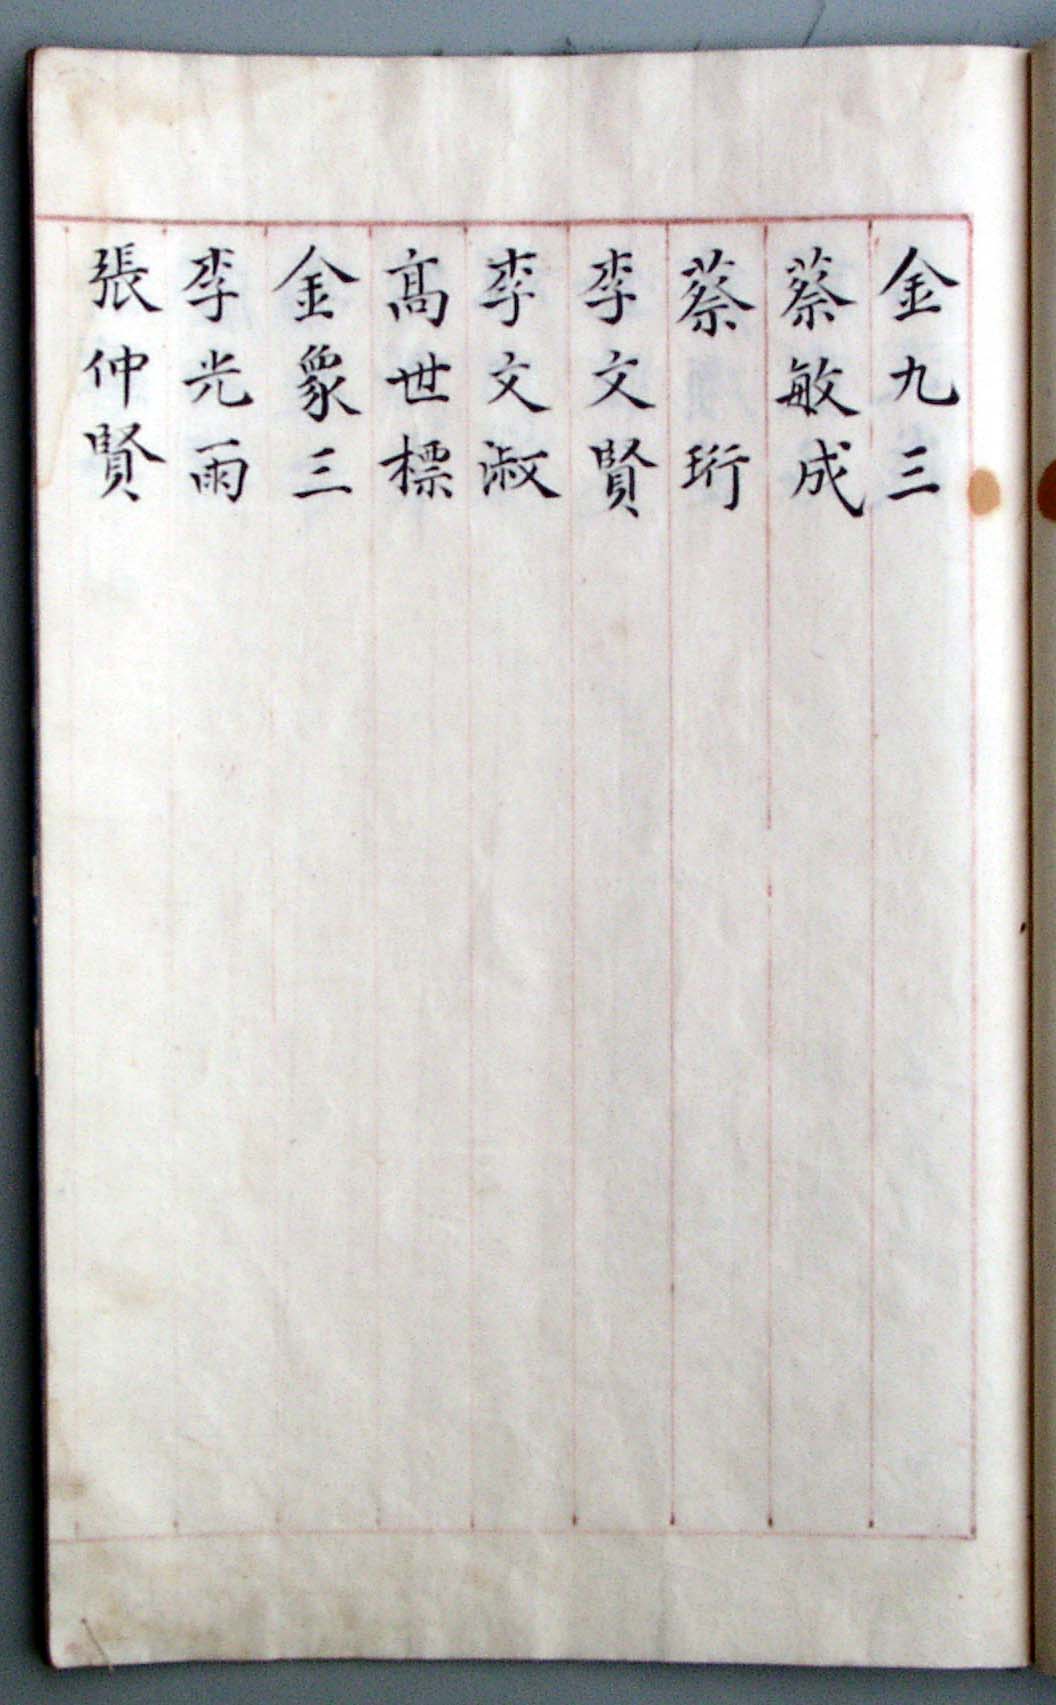 金九三
蔡敏成
蔡珩
李文賢
李文淑
髙世標
金象三
李光雨
張仲賢